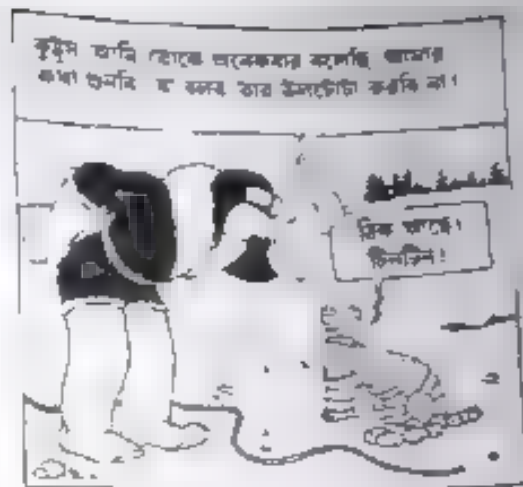 কুটুস আমি তোকে অনেকবার বলেছি আমার
কথা শুনবি যা বলব তার উলটোটা করবি না।
ঠিক আছে।